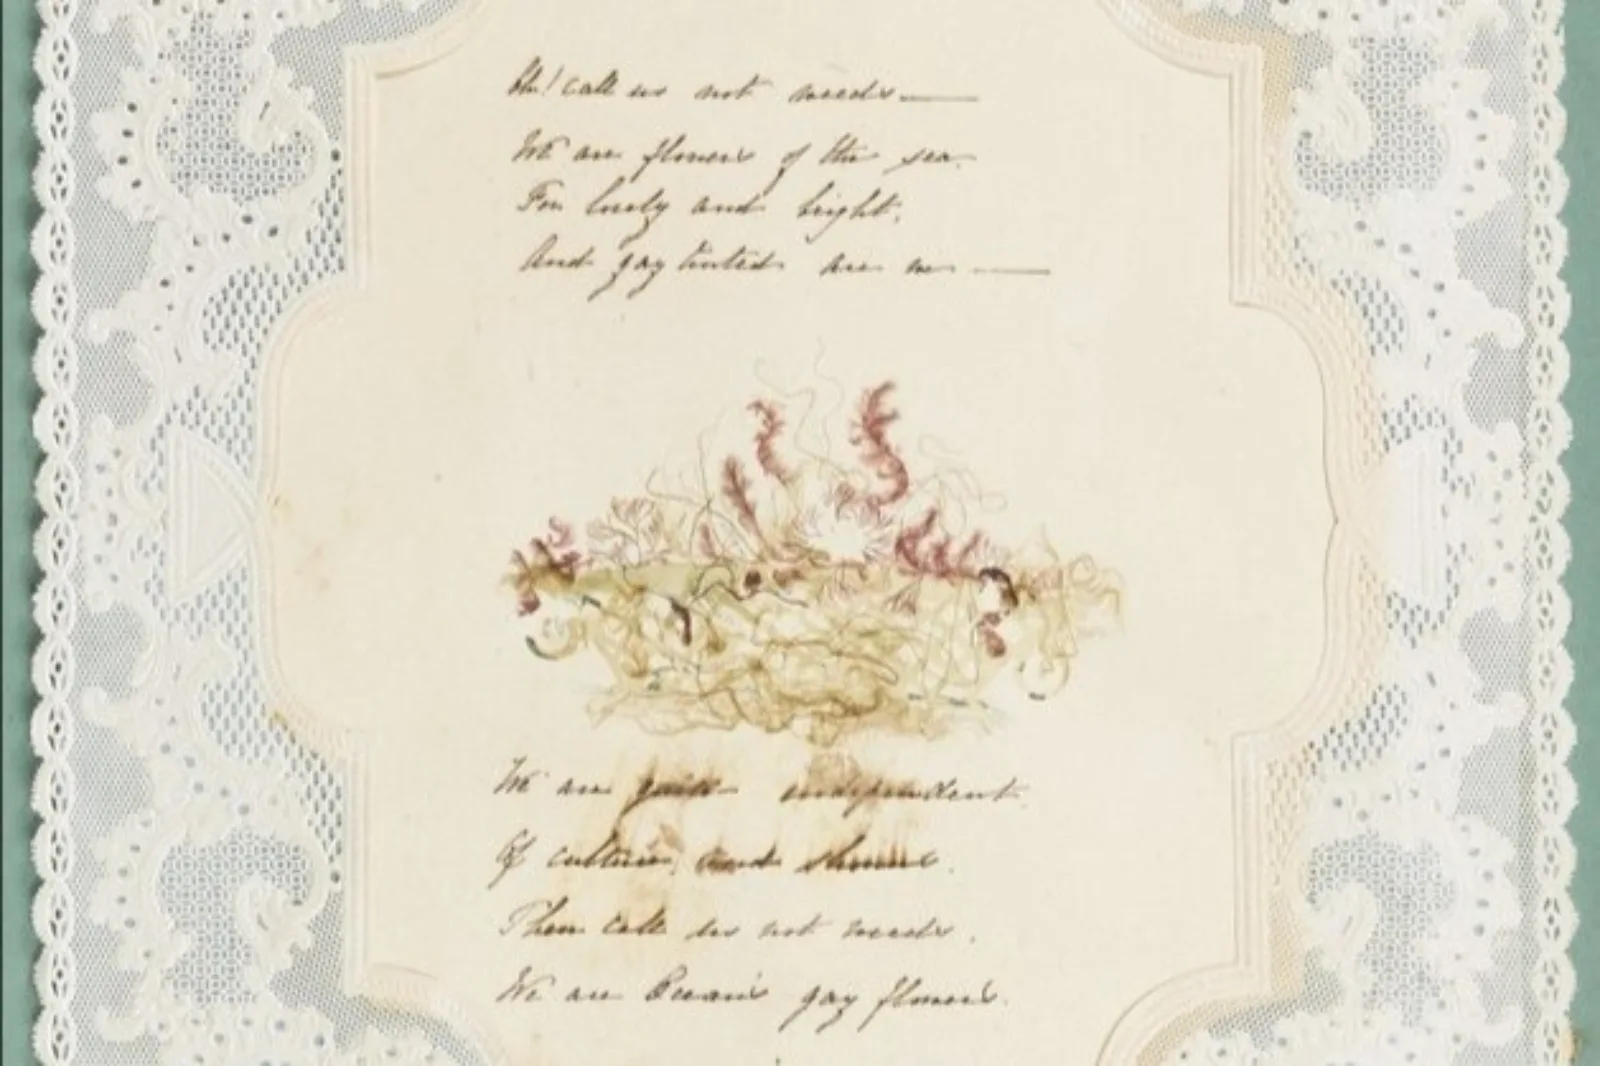 Oh! call us not weeds —
We are flowers of the sea.
For lovely and bright,
And gay tinted are we —
We are quite independent
Of culture, and showers.
Then call us not weeds,
We are Ocean's gay flowers.